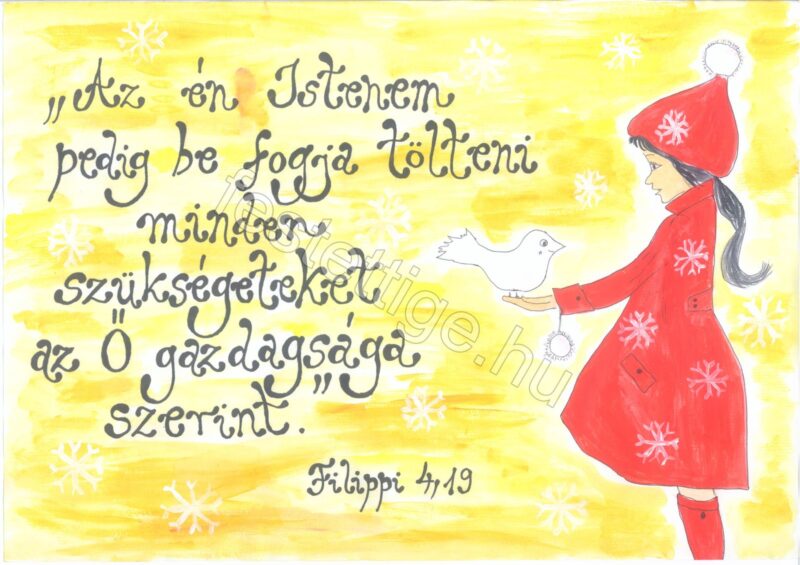 „Az én Istenem
pedig be fogja tölteni
minden
szükségeteket
az Ő gazdagsága
szerint.”
Filippi 4,19
festettige.hu